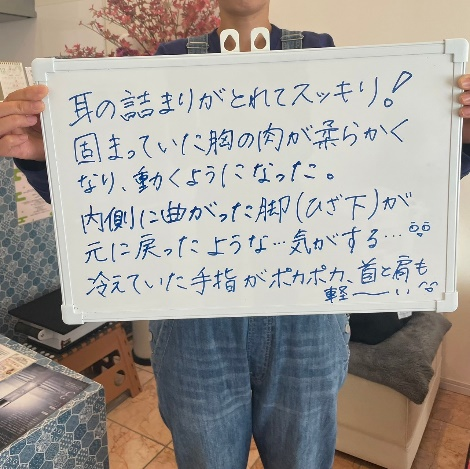 耳の詰まりがとれてスッキリ！
固まっていた胸の肉が柔らかく
なり、動くようになった。
内側に曲がった脚(ひざ下)が
元に戻ったような…気がする…
冷えていた手指がポカポカ、首と肩も
軽〜い